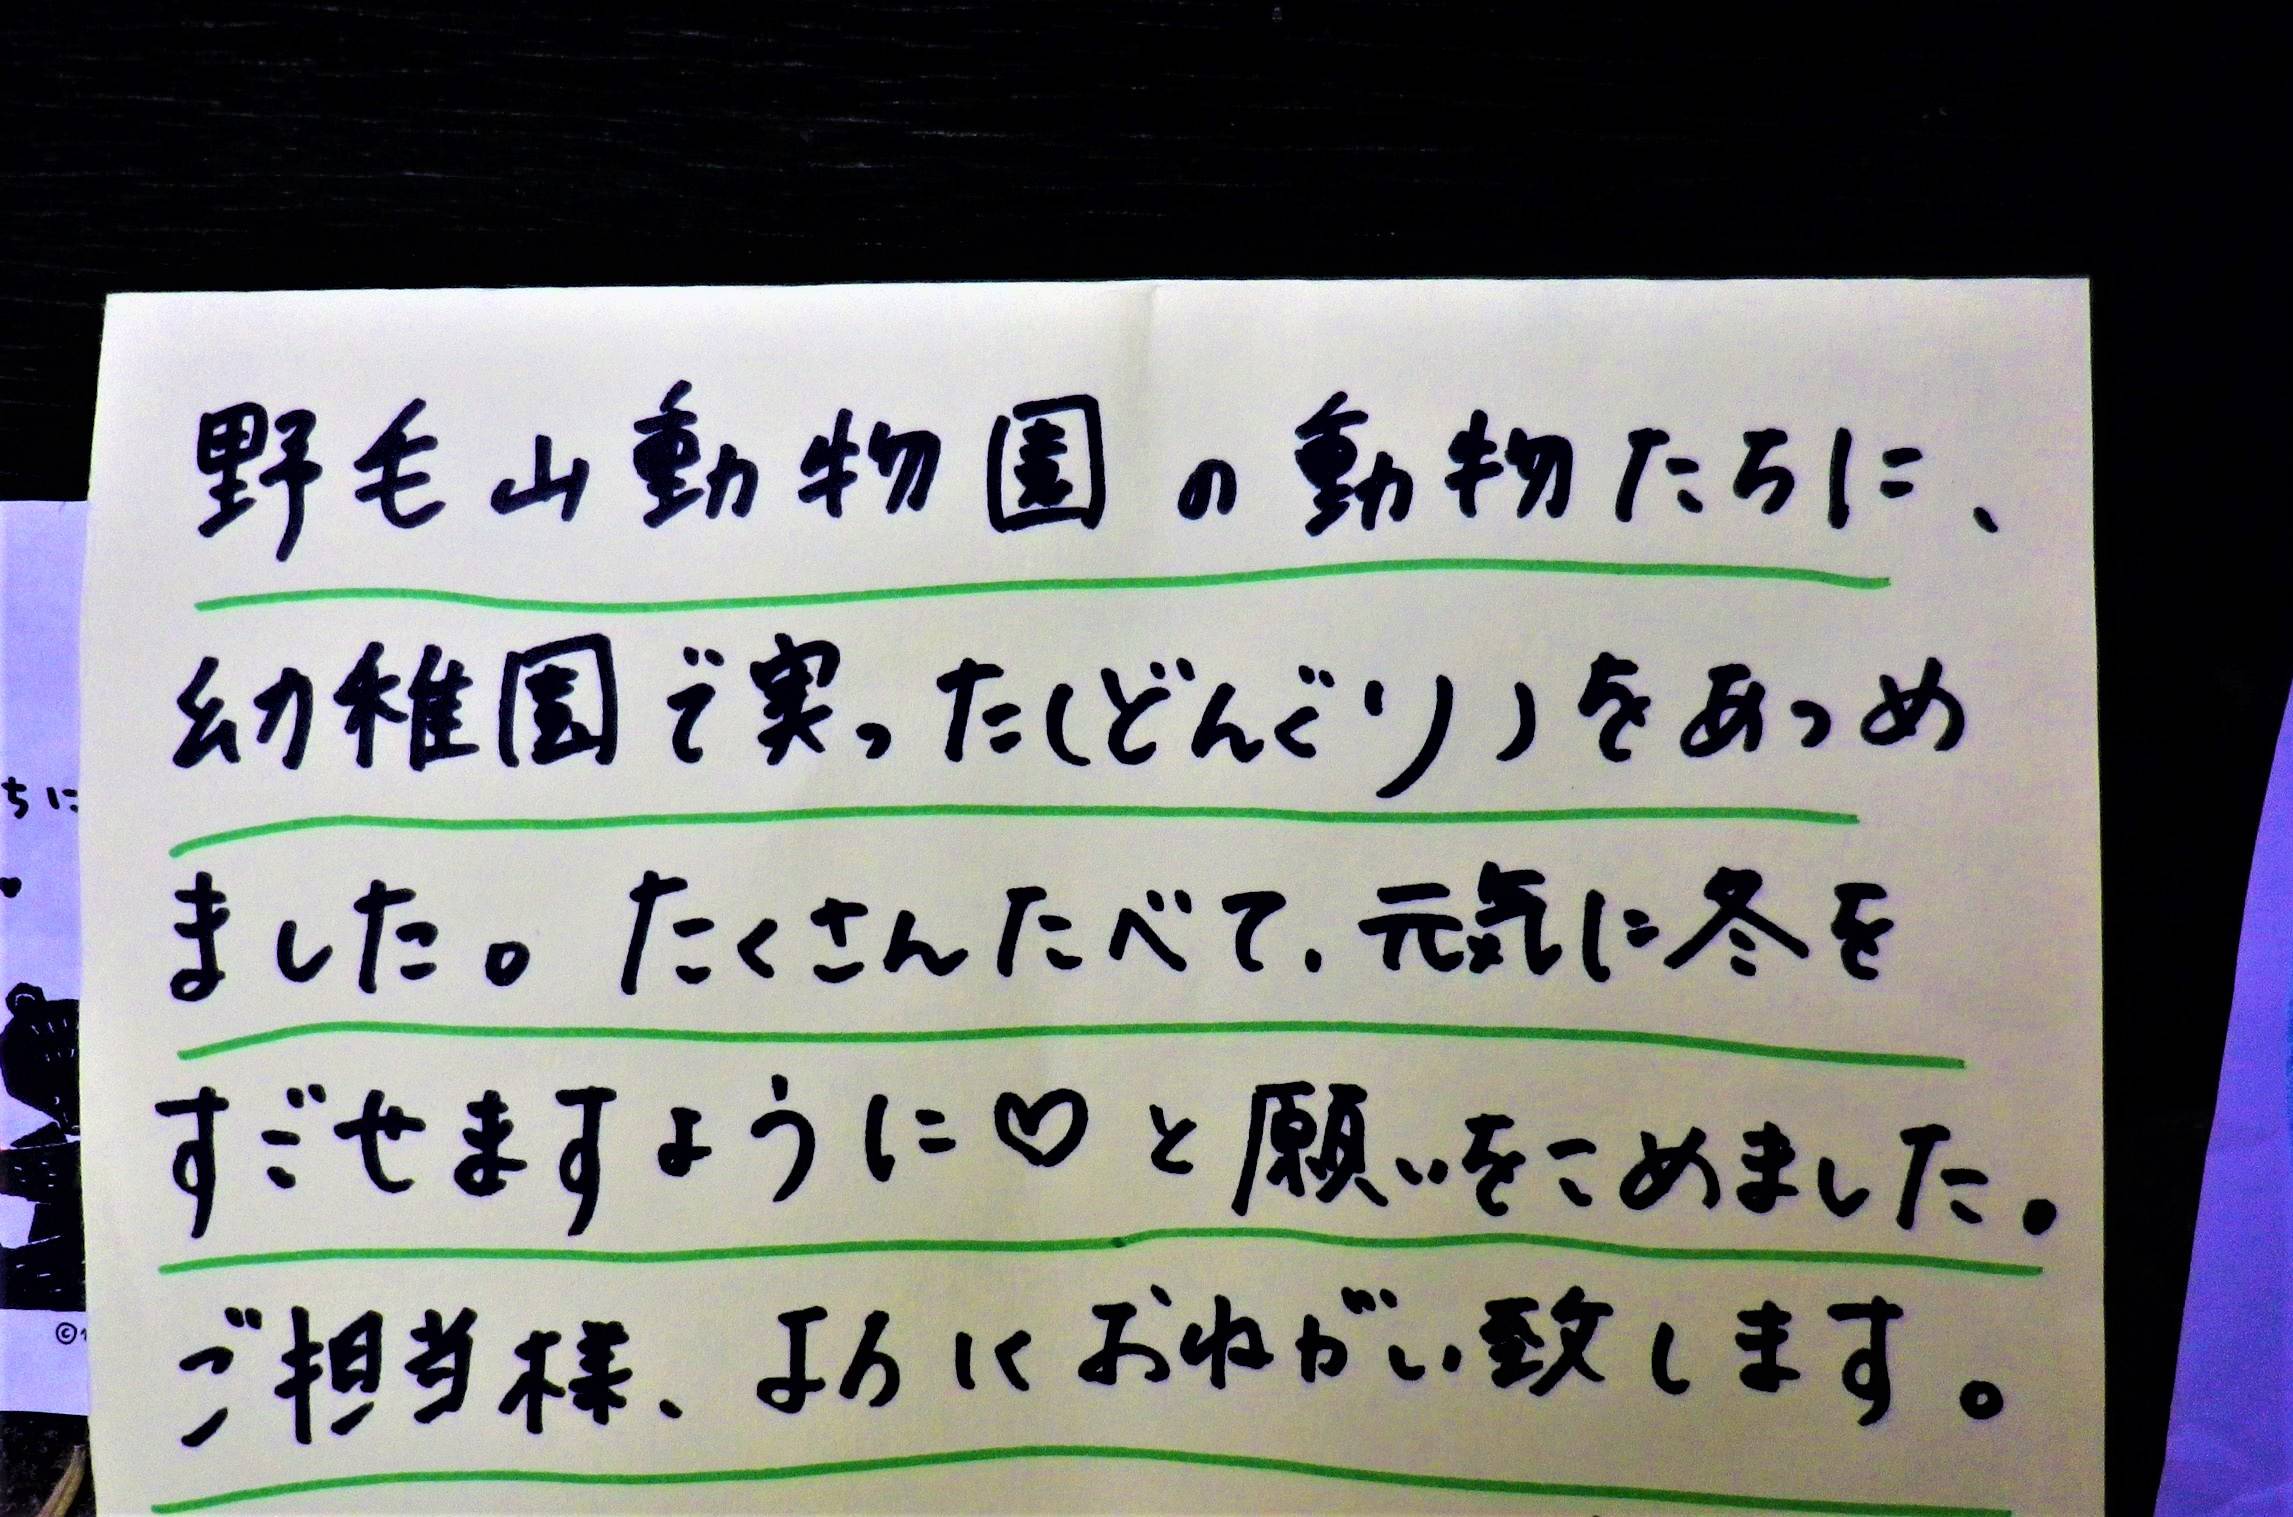 野毛山動物園の動物たちに、
幼稚園で実った(どんぐり)をあつめ
ました。たくさんたべて、元気に冬を
すごせますように♡と願いをこめました。
ご担当様、よろしくおねがい致します。
ちに
♥
©1